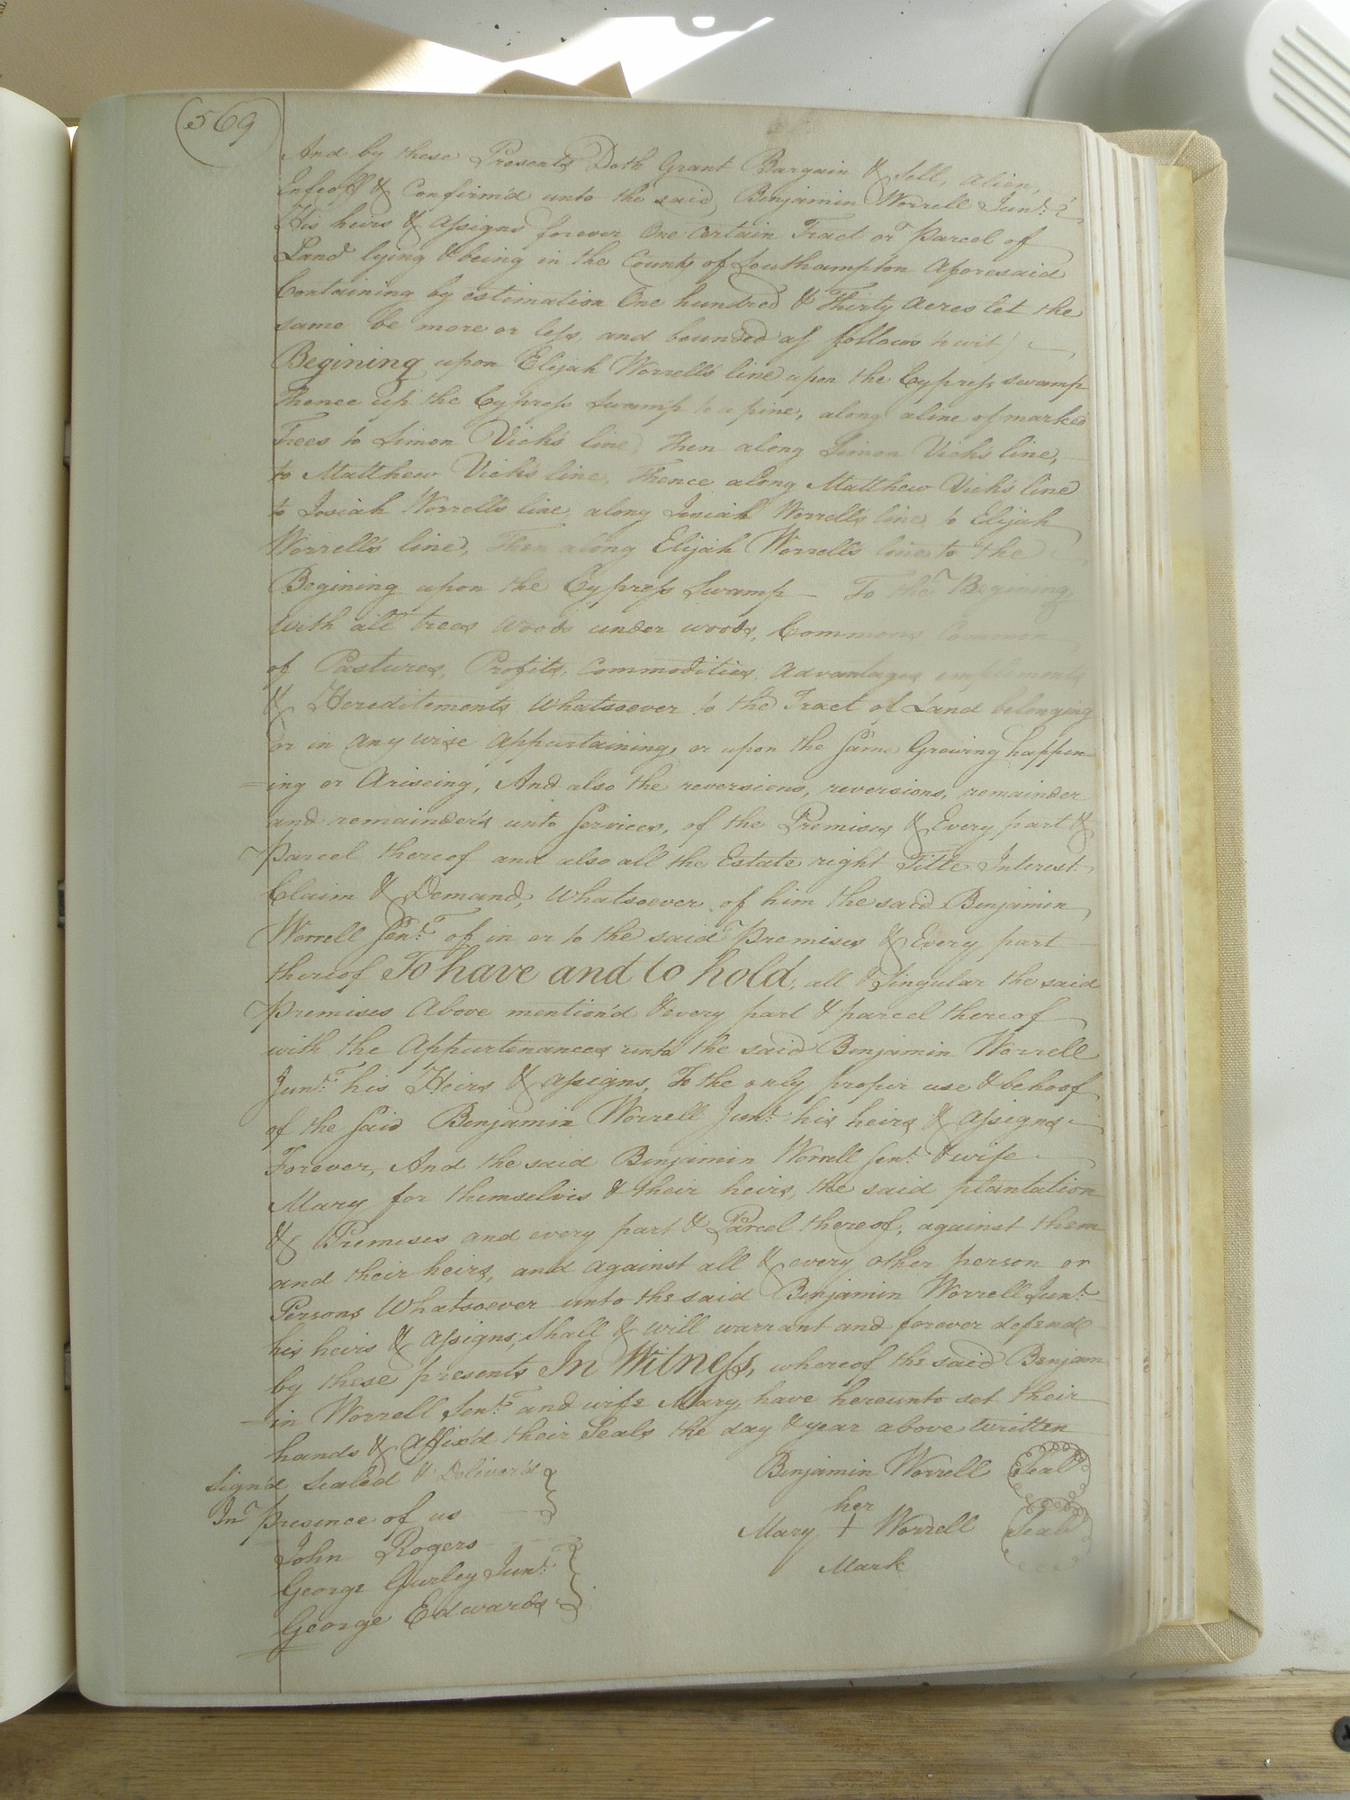 569
And by these Presents Doth Grant Bargain & Sell, alien,
Enfeoff & Confirm'd unto the said, Benjamin Worrell Junr.
His heirs & assigns forever One Certain Tract or Parcel of
Land lying & being in the County of Southampton Aforesaid
Containing by estimation One hundred & Thirty Acres let the
same be more or less, and bounded as follows towit)
Begining upon Elijah Worrell's line upon the Cypress swamp
Thence up the Cypress Swamp to a pine, along a line of marked
Trees to Simon Vick's line, Then along Simon Vicks line,
to Matthew Vick's line, Thence along Matthew Vick's line
to Josiah Worrell's line, along Josiah Worrell's line, to Elijah
Worrell's line, Then along Elijah Worrells line to the
Begining upon the Cypress Swamp — To the Begining
With all trees Woods under woods, Commons Common
of Pastures, Profits, Commodities, Advantages emploments
& Hereditements Whatsoever to the Tract of Land belonging
or in any wise Appurtaining, or upon the same Growing happen
=ing or Ariseing, And also the reversions, reversions, remainder
and remainder's unto Services, of the Premises & Every part &
Parcel thereof and also all the Estate right Title Interest
Claim & Demand, Whatsoever of him the said Benjamin
Worrell Senr. of in or to the said Premises & Every part
thereof To have and to hold, all & Singular the said
Premises Above mention'd & every part & parcel thereof
with the Appurtenances unto the said Benjamin Worrell
Junr. his Heirs & assigns, To the only proper use & behoof
of the said Benjamin Worrell Junr. his heirs & assigns
Forever, And the said Benjamin Worrell Senr. & wife
Mary for themselvis & their heirs, the said plantation
& Premises and every part & Parcel thereof, against them
and their heirs, and against all & every other person or
Persons Whatsoever unto the said Benjamin Worrell Junr.
his heirs & assigns, shall & will warrant and forever defend
by these presents In Witness, whereof the said Benjam
-in Worrell Senr. and wife Mary, have hereunto set their
hands & Affix'd their Seals the day & year above written
Sign'd Sealed & Deliver'd
In Presence of us
John Rogers
George Gurley Junr.
George Edwards
Benjamin Worrell Seal
her
Mary + Worrell Seal
Mark